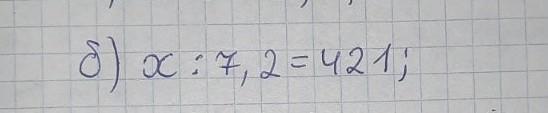 б) x : 7,2 = 421;